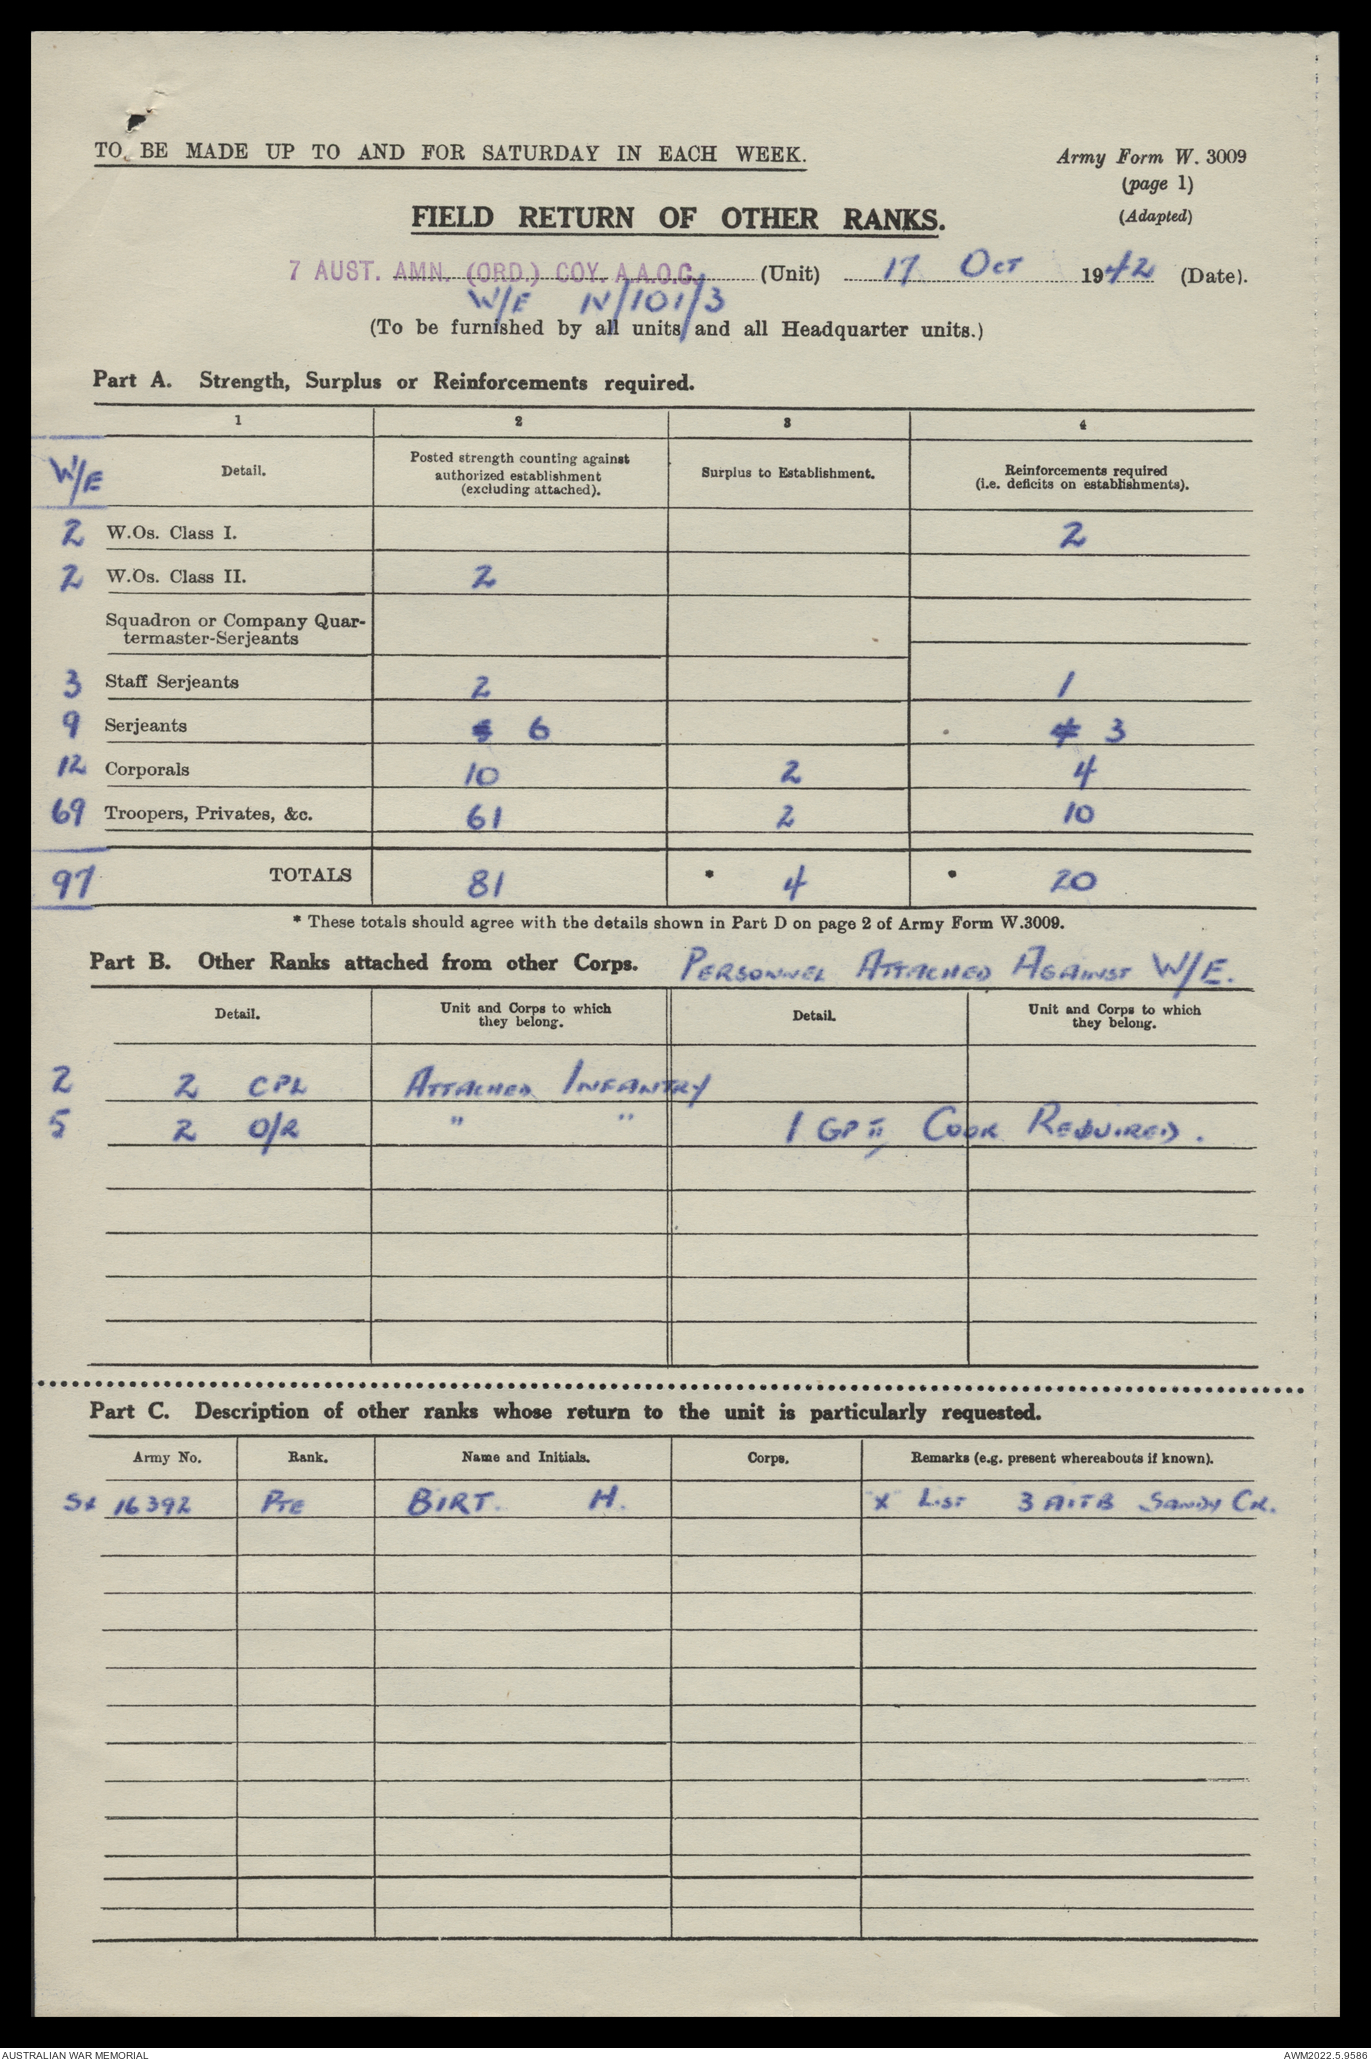 TO BE MADE UP TO AND FOR SATURDAY IN EACH WEEK.
Army Form W. 3009
(page 1)
(Adapted)
FIELD RETURN OF OTHER RANKS.
7 AUST. AMN. (ORD.) COY. A.A.O.C. (Unit) 17 Oct 1942 (Date).
W/E N/101/3
(To be furnished by all units and all Headquarter units.)
Part A. Strength, Surplus or Reinforcements required.
1 2 3 4
W/E Detail. Posted strength counting against authorized establishment (excluding attached). Surplus to Establishment. Reinforcements required (i.e. deficits on establishments).
2 W.Os. Class I. 2
2 W.Os. Class II. 2
Squadron or Company Quar-
termaster-Serjeants
3 Staff Serjeants 2 1
9 Serjeants 6 3
12 Corporals 10 2 4
69 Troopers, Privates, &c. 61 2 10
97 TOTALS 81 * 4 * 20
* These totals should agree with the details shown in Part D on page 2 of Army Form W.3009.
Part B. Other Ranks attached from other Corps. PERSONNEL ATTACHED AGAINST W/E.
Detail. Unit and Corps to which they belong. Detail. Unit and Corps to which they belong.
2 2 CPL ATTACHED INFANTRY
5 2 O/R " " 1 GP II COOK REQUIRED.
Part C. Description of other ranks whose return to the unit is particularly requested.
Army No. Rank. Name and Initials. Corps. Remarks (e.g. present whereabouts if known).
SX 16392 PTE BIRT. H. X LIST 3 AITB SANDY CK.
AUSTRALIAN WAR MEMORIAL
AWM2022.5.9586